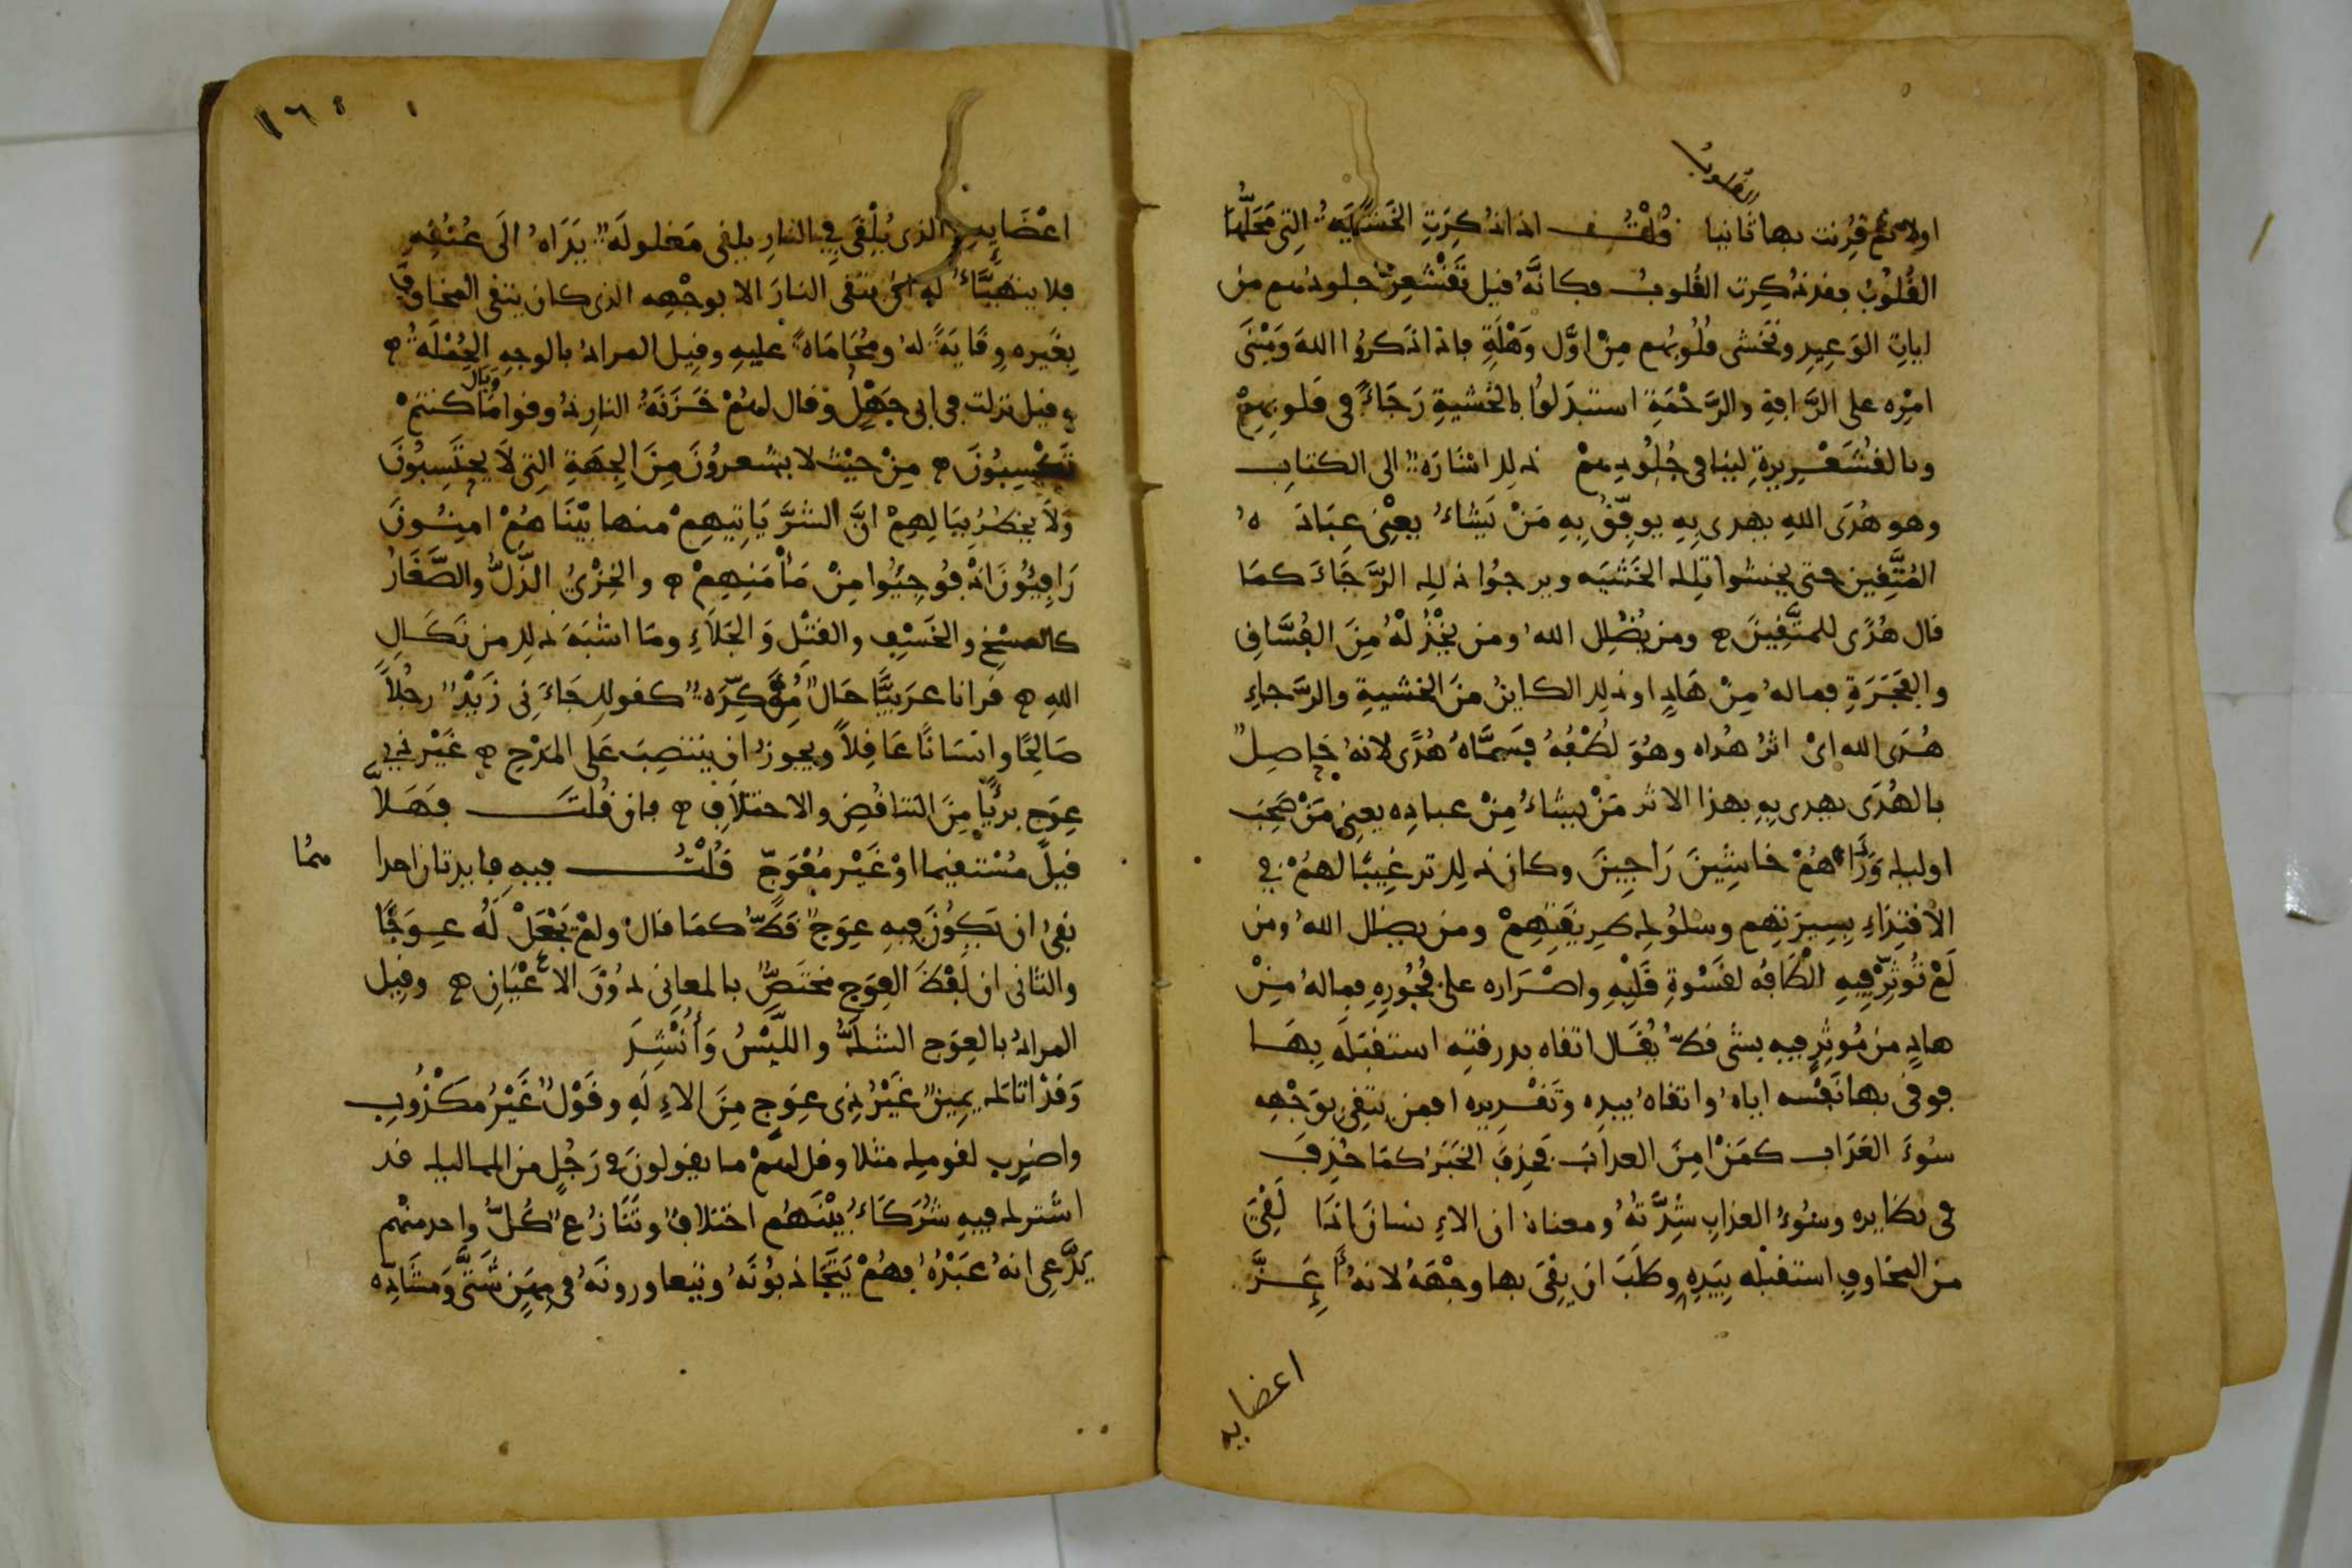 القلوب
اولا ثم قرنت بها ثانيا قُلْتُ اذا ذُكِرَتِ الخَشْيَةُ التِى مَحَلُّهَا
القُلُوبُ فقد ذُكِرت القُلوبُ فكانَّهُ قيل تَقْشَعِرّ جلودهم من
ايات الوَعِيدِ وتَخشى قُلُوبُهم مِنْ اوَّل وَهْلَةٍ فاذا ذَكرُوا اللهَ وَمَبْنَى
امْرِه على الرَّافةِ والرَّحْمَةِ استبدَلوُا بالخَشيةِ رَجَاءً فى قلوبِهِمْ
وبالقُشَعْرِيرةِ لينا فى جُلُودِهِمْ ذلك اشارَة الى الكتابِ
وهو هُدَى اللهِ يهدى بِهِ يوفِّقُ بِهِ مَنْ يَشاءُ يعْنِى عِبَادَهُ
المُتَّقِين حتى يخشوا تلك الخَشيَه ويرجُوا ذلك الرَّجَاءَ كمَا
قال هُدًى للمتَّقِينَ ومن يُضْلِل اللهُ ومن يخْذُلْهُ مِنَ الفُسَّاقِ
والفَجَرَةِ فماله مِنْ هَادٍ او ذلك الكاين مِنَ الخشيةِ والرَّجاءِ
هُدَى الله اىْ اثرُ هُداه وهُوَ لُطْفُهُ فسَمَّاهُ هُدًى لانهُ حَاصِلٌ
بالهُدَى يهدى بِهِ بهذا الاثر مَنْ يشاءُ مِنْ عبادِه يعنِى مَنْ صَحِبَ
اوليك وَرَءَاهُمْ خاشِينَ رَاجِينَ وكان ذلك ترغِيبًا لهُمْ فِى
الاقتِدَاءِ بِسِيرَتِهِم وسلوُك طرِيقَتِهِمْ ومن يضلل اللهُ ومن
لَمْ تُوثِرْ فِيهِ الْطَافُه لقَسْوةِ قَلْبِهِ واصْرَاره على فُجُورِهِ فماله مِنْ
هادٍ من مُوثِرٍ فِيهِ بشىءٍ قَطُّ يُقَال اتقاه بدرقتِه استقبَلَه بِهَا
فوقى بها نَفْسه اياهُ واتقاهُ بيدِه وتَقْدِيره افمن يتقِى بوَجْهِه
سُوءَ العَذَاب كمَنْ امِنَ العذابَ فحُذِفَ الخَبَرُ كمَا حُذِفَ
فى نظايره وسُوءُ العذابِ شِدَّتُهُ ومعناه ان الاءِنسانَ اذَا لَقِىَ
من المخَاوِفِ استقبلَه بيَدِهِ وطَلَبَ ان يقِىَ بها وجْهَهُ لانهُ أَعَزُّ
اعضايه
١٦٤
اعْضَايِهِ الذى يُلْقَى فِى النارِ يلقى مَغلولَةً يدَاهُ الَى عُنُقِهِ
فلا يتهَيَّأ لَهِ ان يتقى النارَ الا بوجْهِه الذى كان يتقى المخاوِفَ
بِغَيرِه وِقَايَةً له ومُحَامَاةً عليهِ وقيل المرادُ بالوجهِ الجُمْلَةُ
وقيل نزلت فى ابى جَهْلٍ وقال لهُمْ خَزَنَةُ النارِ ذُوقوا وبال مَا كنتمْ
تَكْسِبُونَ مِنْ حَيْث لا يشعرُونَ مِنَ الجِهَةِ التِى لَا يحْتَسِبُونَ
وَلَا يخطُرُ بِبَالِهِمْ انَّ الشرَّ يَاتِيهِمْ منها بيْنَا هُمْ امِنُونَ
رَافِهُونَ اذْ فُوجِئُوا مِنْ مَأْمَنِهِمْ والخِزْىُ الذُّلُّ والصَّغَارُ
كالمسْخِ والخَسْفِ والقتْل وَالجَلَاءِ ومَا اشبَهَ ذلك من نَكَالِ
اللهِ قرانا عرَبيًّا حَالٌ مُؤَكِّدَة كقولك جَاءَنِى زَيْدٌ رجُلاً
صَالِحًا وانسَانًا عَاقِلاً ويجوزُ ان ينتصِبَ عَلى المَدْحِ غَيْر ذِى
عِوَجٍ بريًّا مِنَ التناقُضِ والاختلَافِ فان قُلتَ فهَلَّا
قيلَ مُسْتقيما اوْ غَيْر مُعْوَجّ قُلْتُ فيهِ فايدتان احداهُما
نفىُ ان يكُونَ فِيهِ عِوَجٌ قطُّ كمَا قالَ ولَمْ يَجْعَلْ لَه عِوَجًا
والثانى ان لَفْظَ العِوَجِ مختَصٌّ بالمعانِى دُونَ الاعْيَانِ وقِيل
المرادُ بالعِوَجِ الشكُّ واللَّبْسُ وَأُنْشِدَ
وَقَدْ اتاك يمِينٌ غَيْرُ ذِى عِوَجٍ مِنَ الاءِلَهِ وقَوْلٌ غَيْرُ مكْذُوبِ
واضرِب لقومِك مثلا وقل لهُمْ ما يقولونَ فى رَجُلٍ من المماليك قد
اشترك فِيهِ شُرَكَاءُ بيْنَهُم اختلافٌ وتَنَازُعٌ كُلُّ واحد منهم
يَدَّعِى انهُ عَبْدُهُ فهُمْ يَتَجَاذبُونَهُ ويتعاورونَهُ فى مِهَنٍ شَتَّى وَمشَادّه